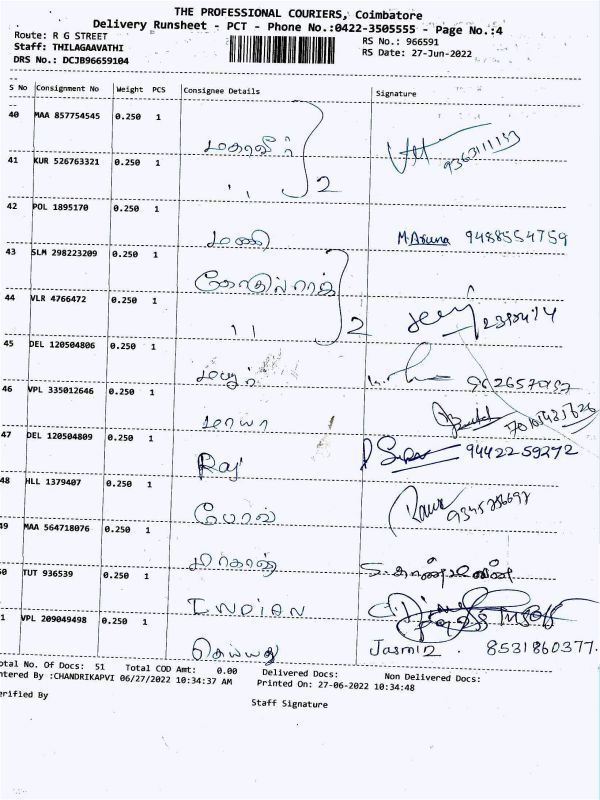 THE PROFESSIONAL COURIERS, Coimbatore
Delivery Runsheet - PCT - Phone No.:0422-3505555 - Page No.:4
Route: R G STREET
RS No.: 966591
Staff: THILAGAAVATHI
RS Date: 27-Jun-2022
DRS No.: DCJB96659104
S No Consignment No Weight PCS Consignee Details Signature
40 MAA 857754545 0.250 1
மகாவீர்
41 KUR 526763321 0.250 1
" 2
42 POL 1895170 0.250 1
மணி M.Aruna 9488554759
43 SLM 298223209 0.250 1
44 VLR 4766472 0.250 1
" 2
45 DEL 120504806 0.250 1
46 VPL 335012646 0.250 1
மாயா
47 DEL 120504809 0.250 1
Raj 94422 59272
48 HLL 1379407 0.250 1
49 MAA 564718076 0.250 1
50 TUT 936539 0.250 1
INDIAN
1 VPL 209049498 0.250 1
Jasmin . 8531860377.
otal No. Of Docs: 51 Total COD Amt: 0.00 Delivered Docs: Non Delivered Docs:
ntered By :CHANDRIKAPVI 06/27/2022 10:34:37 AM Printed On: 27-06-2022 10:34:48
erified By
Staff Signature